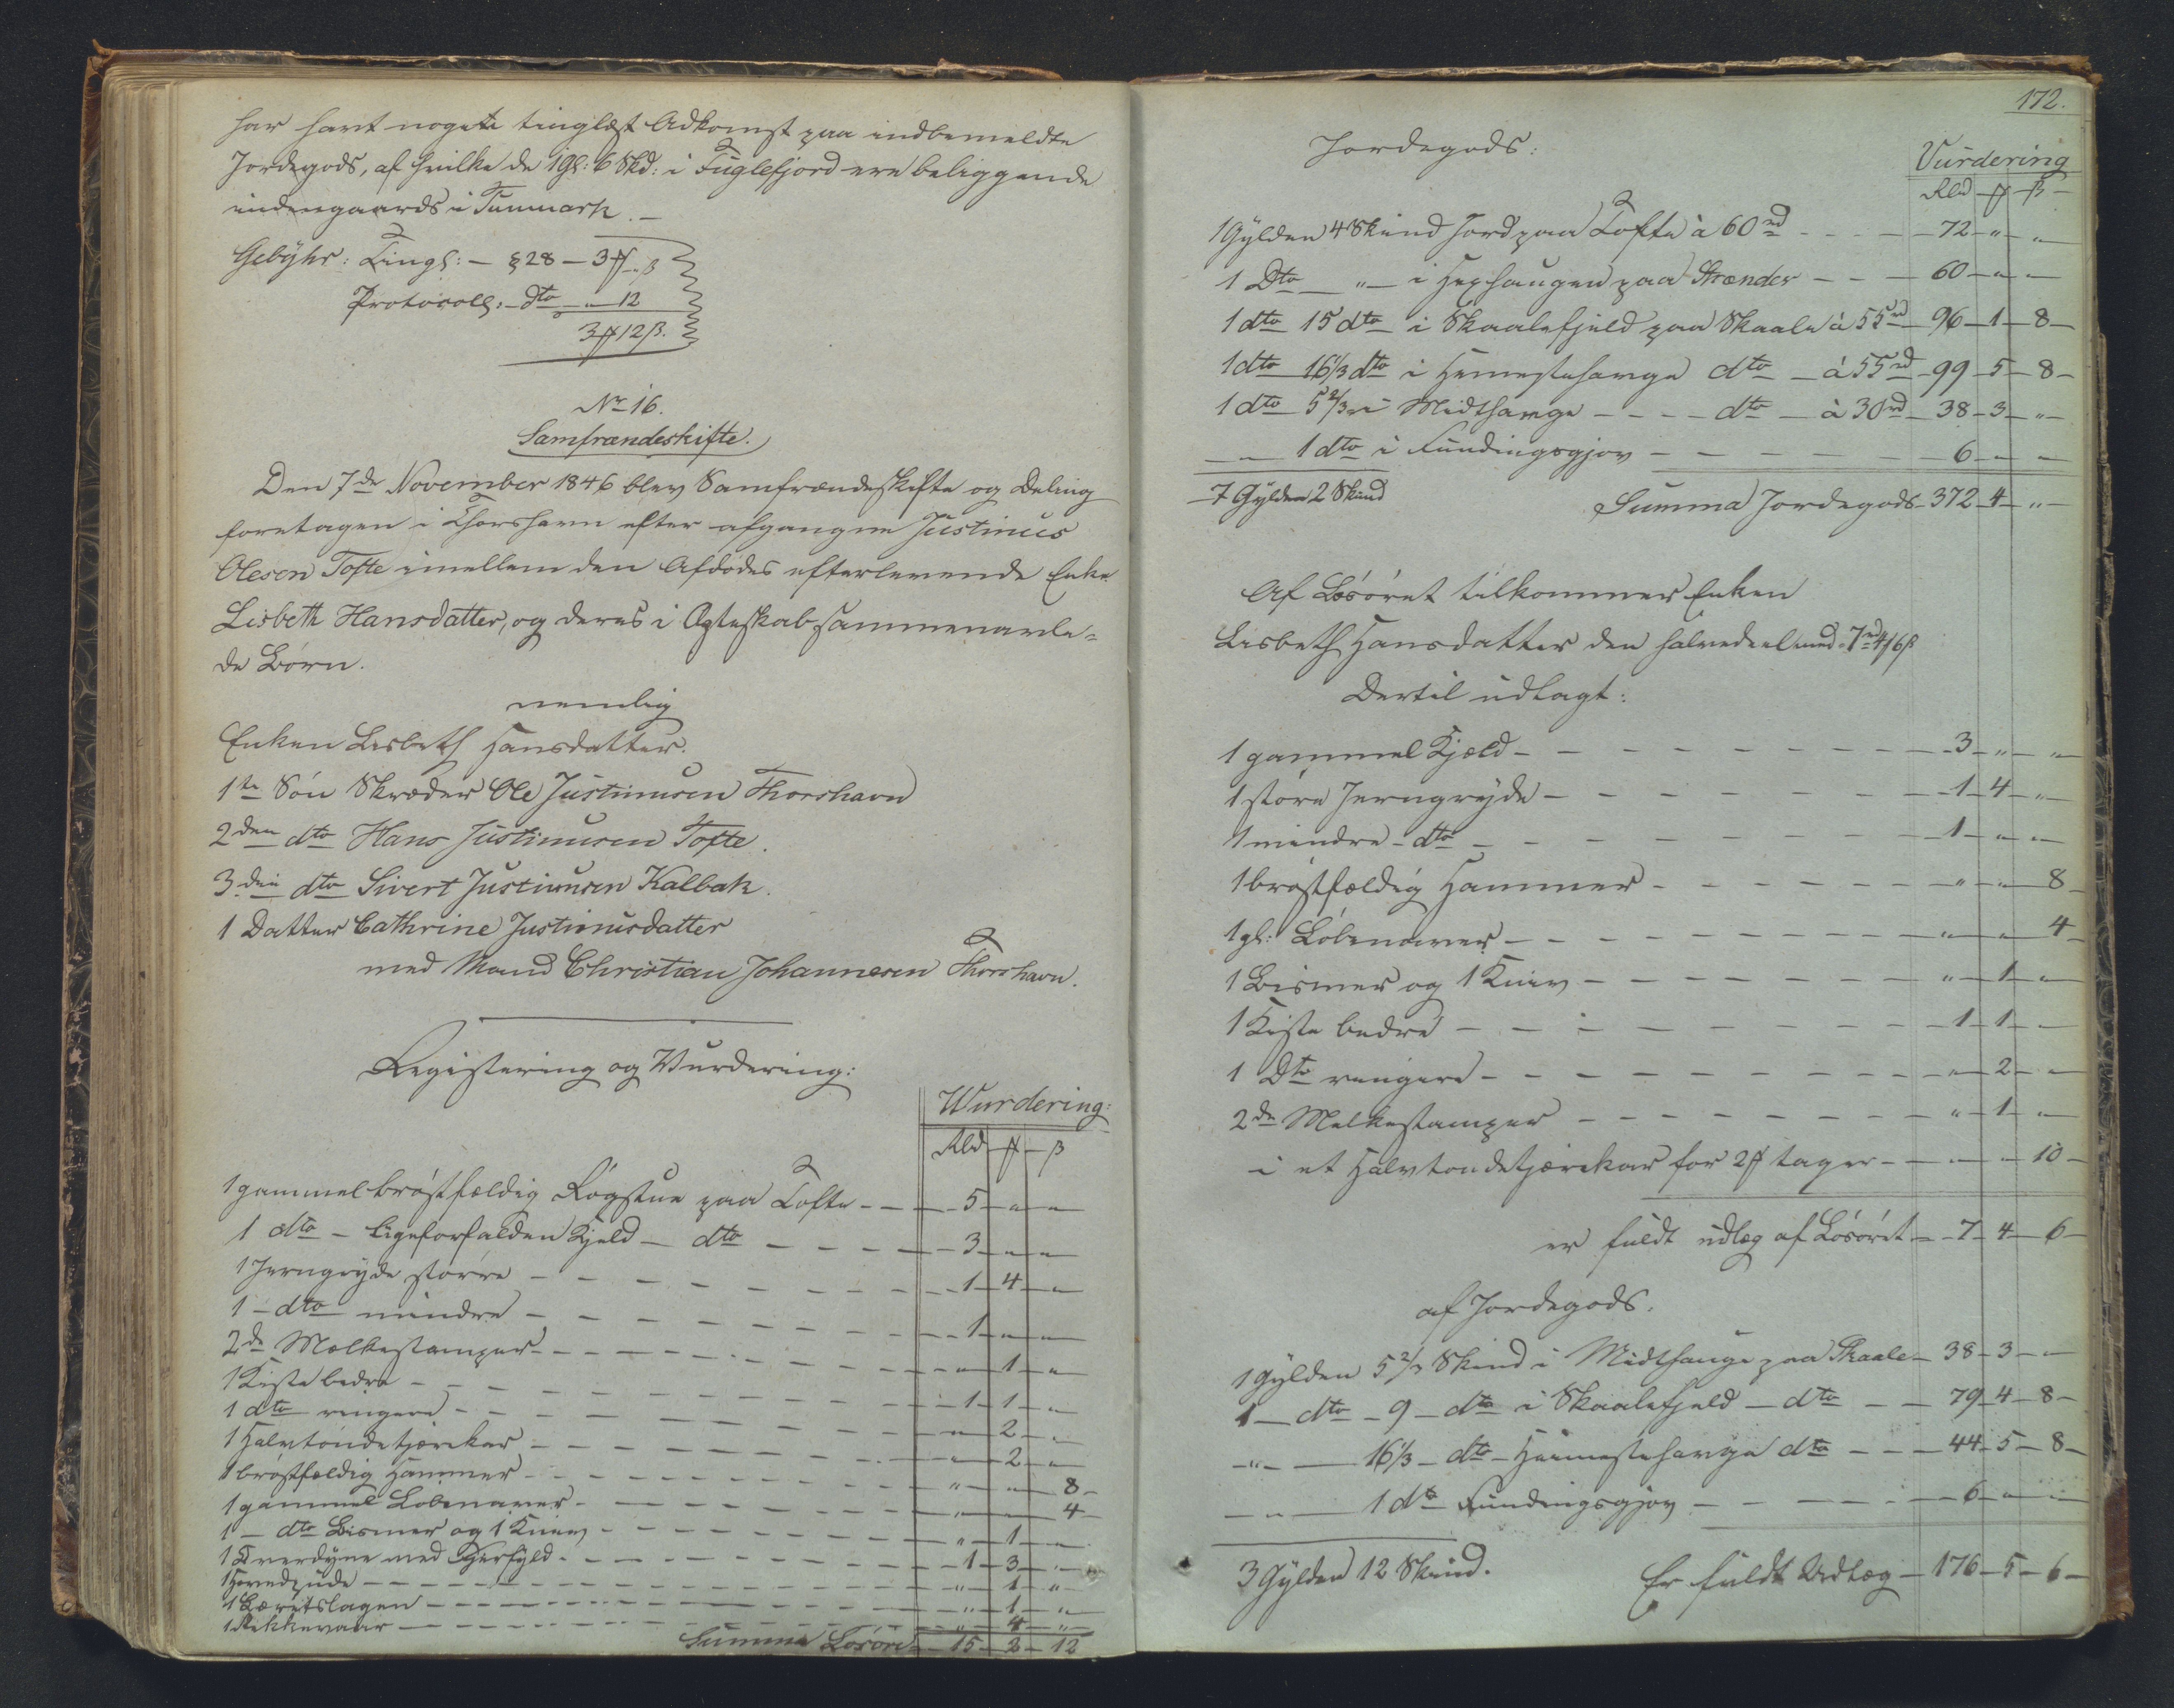 har havt nogete tinglæst Adkomst paa indbemeldte
Jordegods, af hvilke de 1 Gl: 6 Skd: i Fuglefjord ere beliggende
indengaards i Tunmark. —
Gebyhr: Tingl: — § 28 — 3 ƒ „ β
Protocoll: — dto — „ — 12
3 ƒ 12 β.
No 16.
Samfrændeskifte.
Den 7de November 1846 blev Samfrændeskifte og Deling
foretagen i Thorshavn efter afgangne Justinus
Olesen Tofte imellem den Afdødes efterlevende Enke
Lisbeth Hansdatter, og deres i Ægteskab sammenavle-
de Børn.
nemlig
Enken Lisbeth Hansdatter.
1te Søn Skræder Ole Justinusen Thorshavn
2den dto Hans Justinusen Tofte.
3die dto Sivert Justinusen Kalbak.
1 Datter Cathrine Justinusdatter
med Mand Christian Johannesen Thorshavn.
Registering og Vurdering:
Wurdering:
Rbd — ƒ — β
1 gammel brøstfældig Røgstue paa Tofte — 5 — „ — „
1 dto — ligeforfalden Kjeld — dto — 3 — „ — „
1 Jerngryde større — 1 — 4 — „
1 — dto mindre — 1 — „ — „
2de Melkestamper — „ — 1 — „
1 Kiste bedre — 1 — 1 — „
1 dto ringere — „ — 2 — „
1 Halvtøndetjærekar — „ — 2 — „
1 brøstfældig Hammer — „ — „ — 8
1 gammel Løbenaver — „ — „ — 4
1 — dto Bismer og 1 Kniv — „ — 1 — „
1 Overdyne med — 1 — 3 — „
1 Hovedpude — „ — 1 — „
1 Læretslagen — „ — 1 — „
1 — „ — 4 — „
Summa Løsøre — 15 — 2 — 12
172.
Jordegods:
Vurdering
Rbd — ƒ — β
1 Gylden 4 Skind Jord paa Tofte à 60rd — 72 — „ — „
1 Dto — „ — i paa Strænder — 60 — „ — „
1 dto 15 dto i Skaalefjeld paa Skaale à 55rd — 96 — 1 — 8
1 dto 16 1/3 dto i Heimestehauge dto — à 55rd — 99 — 5 — 8
1 dto 5 2/3 „ i Midthauge — dto — à 30rd — 38 — 3 — „
— „ — 1 dto i Fundingsgjov — 6 — „ — „
7 Gylden 2 Skind Summa Jordegods — 372 — 4 — „
Af Løsøret tilkommer Enken
Lisbeth Hansdatter den halvedeel med 7rd 4 ƒ 6 β
Dertil udlagt:
1 gammel Kjeld — 3 — „ — „
1 større Jerngryde — 1 — 4 — „
1 mindre — dto — 1 — „ — „
1 brøstfældig Hammer — „ — „ — 8
1 gl: Løbenaver — „ — „ — 4
1 Bismer og 1 Kniv — „ — 1 — „
1 Kiste bedre — 1 — 1 — „
1 Dto ringere — „ — 2 — „
2de Melkestamper — „ — 1 — „
i et Halvtøndetjærekar for 2 ƒ tager — „ — „ — 10
er fuldt udlæg af Løsøret — 7 — 4 — 6
af Jordegods.
1 Gylden 5 2/3 Skind i Midthauge paa Skaale — 38 — 3 — „
1 — dto — 9 — dto i Skaalefjeld — dto — 79 — 4 — 8
— „ — 16 1/3 — dto — Heimestehauge dto — 44 — 5 — 8
— „ — 1 dto Fundingsgjov — 6 — „ — „
3 Gylden 12 Skind. Er fuldt Udlæg — 176 — 5 — 6